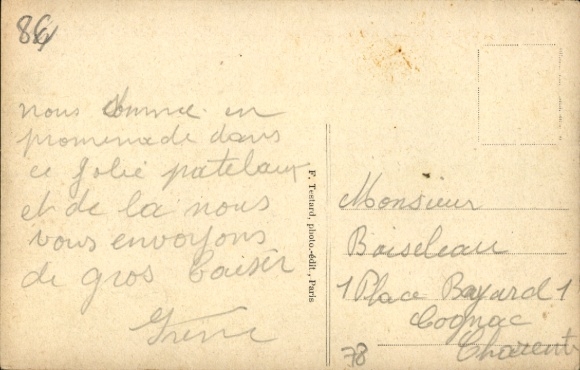 86
nous somme en
promenade dans
ce jolie patelaux
et de la nous
vous envoyons
de gros baiser
Irène
F. Testard, photo.-édit., Paris
Monsieur
Boiseleau
1 Place Bayard 1
Cognac
Charente
78